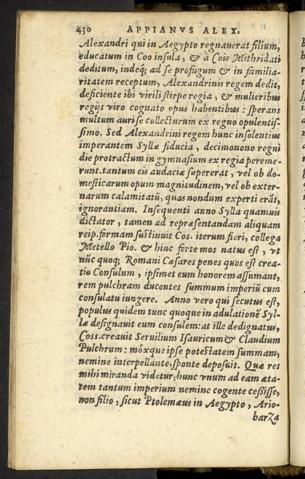 430 APPIANVS ALEX.
Alexandri qui in Aegypto regnauerat filium,
educatum in Coo insula, & à Cois Mithridati
deditum, indeq; ad se profugum & in familia-
ritatem receptum, Alexandrinis regem dedit,
deficiente ibi virili stirpe regia, & mulieribus
regijs viro cognato opus habentibus: sperans
multum auri se collecturum ex regno opulentis-
simo. Sed Alexandrini regem hunc insolentius
imperantem Syllæ fiducia, decimonono regni
die protractum in gymnasium ex regia pereme-
runt. tantum eis audaciæ supererat, vel ob do-
mesticarum opum magnitudinem, vel ob exter-
narum calamitatũ, quas nondum experti erãt,
ignorantiam. Insequenti anno Sylla quamuis
dictator, tamen ad repræsentandam aliquam
reip. formam sustinuit Cos. iterum fieri, collega
Metello Pio. & hinc forte mos natus est, vt
nũc quoq; Romani Cæsares penes quos est crea-
tio Consulum, ipsimet eum honorem assumant,
rem pulchram ducentes summum imperiũ cum
consulatu iungere. Anno vero qui secutus est,
populus quidem tunc quoque in adulationẽ Syl-
læ designauit eum consulem: at ille dedignatus,
Coss. creauit Seruilium Isauricum & Claudium
Pulchrum: móxque ipse potestatem summam,
nemine interpellante, sponte deposuit. Quæ res
mihi miranda videtur, hunc vnum ad eam æta-
tem tantum imperium nemine cogente cessisse,
non filio, sicut Ptolemæus in Aegypto, Ario-
barza